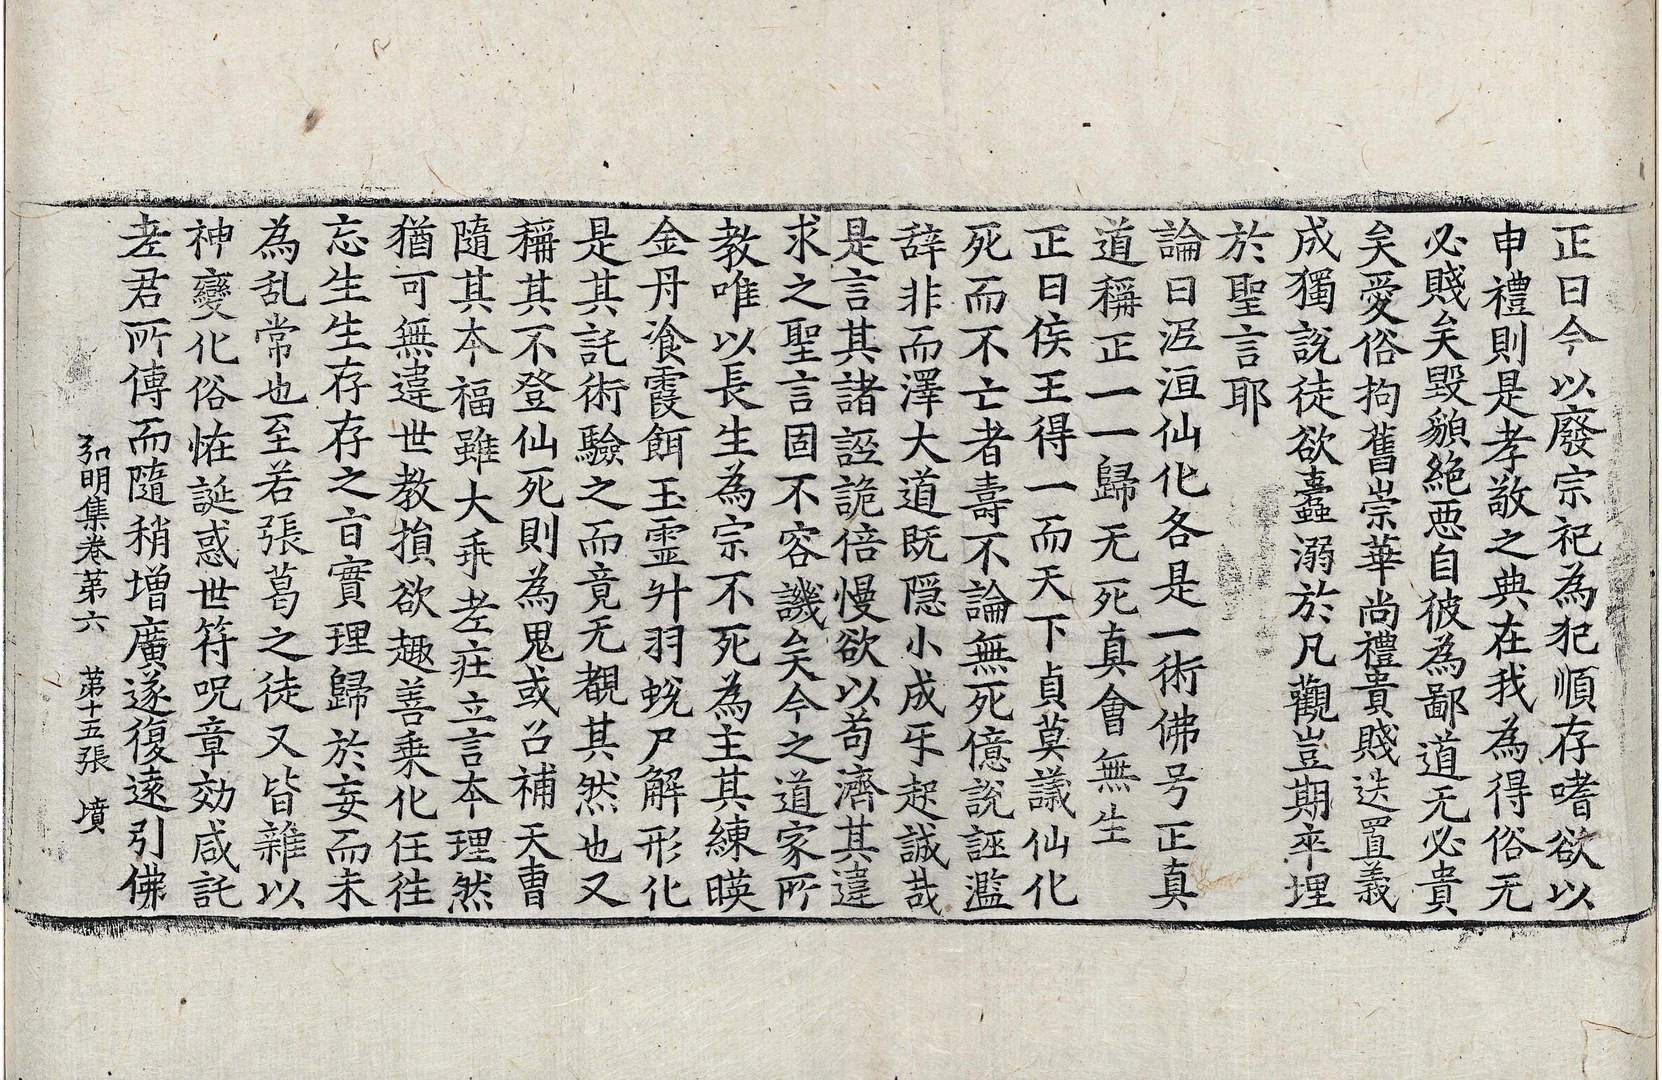 正曰今以廢宗祀為犯順存嗜欲以
申禮則是孝敬之典在我為得俗无
必賤矣毀貌絶惡自彼為鄙道无必貴
矣愛俗拘舊崇華尚禮貴賤迭置義
成獨說徒欲蠹溺於凡觀豈期卒埋
於聖言耶
論曰泥洹仙化各是一術佛号正真
道稱正一一歸无死真會無生
正曰侯王得一而天下貞莫議仙化
死而不亡者壽不論無死億說誣濫
辞非而澤大道既隠小成㸦起誠哉
是言其諸誣詭倍慢欲以苟濟其違
求之聖言固不容譏矣今之道家所
教唯以長生為宗不死為主其練暎
金丹飡霞餌玉霊升羽蛻尸解形化
是其託術驗之而竟无覩其然也又
稱其不登仙死則為鬼或召補天曹
隨其本福雖大乖老庄立言本理然
猶可無違世教損欲趣善乗化任往
忘生生存存之㫖實理歸於妄而未
為乱常也至若張葛之徒又皆雜以
神變化俗恠誕惑世符呪章効咸託
老君所傳而隨稍增廣遂復遠引佛
弘明集卷第六 第十五張 墳